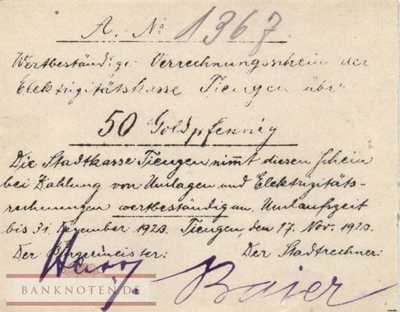 A. No 1367
Wertbeständiger Verrechnungsschein der
Elektrizitätskasse Tiengen über
50 Goldpfennig
Die Stadtkasse Tiengen nimmt diesen Schein
bei Zahlung von Umlagen und Elektrizitäts-
rechnungen wertbeständig an. Umlaufszeit
bis 31. Dezember 1923. Tiengen, den 17. Nov. 1923.
Der Bürgermeister: Der Stadtrechner:
Baier
BANKNOTEN.DE